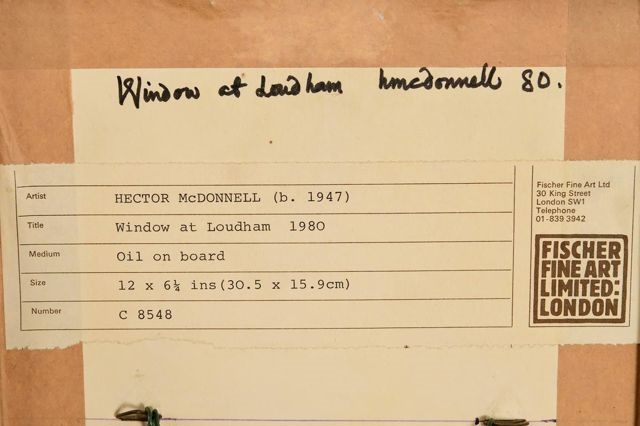 Window at Loudham hmcdonnell 80.
Artist HECTOR McDONNELL (b. 1947)
Title Window at Loudham 1980
Medium Oil on board
Size 12 x 6¼ ins (30.5 x 15.9cm)
Number C 8548
Fischer Fine Art Ltd
30 King Street
London SW1
Telephone
01-839 3942
FISCHER
FINE ART
LIMITED:
LONDON